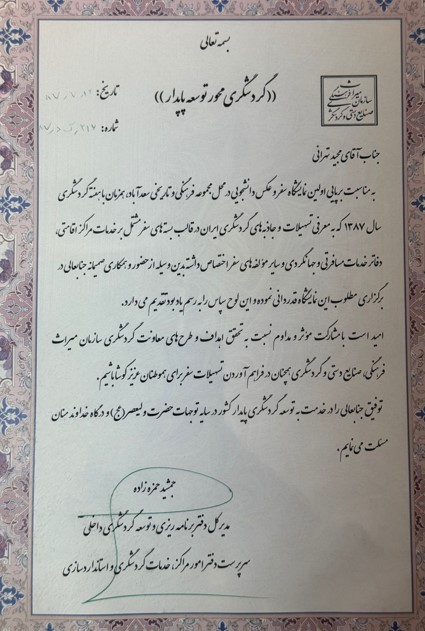 بسمه تعالی
سازمان میراث فرهنگی
صنایع دستی و گردشگری
((گردشگری محور توسعه پایدار))
تاریخ:
شماره:
جناب آقای مجید تهرانی
به مناسبت برپایی اولین نمایشگاه سفر و عکس دانشجویی در محل مجموعه فرهنگی و تاریخی سعدآباد، همزمان با هفته گردشگری
سال ۱۳۸۷ که به معرفی تسهیلات و جاذبه‌های گردشگری ایران در قالب بسته‌های سفر مشتمل بر خدمات مراکز اقامتی،
دفاتر خدمات مسافرتی و جهانگردی و سایر مؤلفه‌های سفر اختصاص داشته بدین وسیله از حضور و همکاری صمیمانه جنابعالی در
برگزاری مطلوب این نمایشگاه قدردانی نموده و این لوح سپاس را به رسم یادبود تقدیم می دارد.
امید است با مشارکت مؤثر و مداوم نسبت به تحقق اهداف و طرح‌های معاونت گردشگری سازمان میراث
فرهنگی، صنایع دستی و گردشگری همچنان در فراهم آوردن تسهیلات سفر برای هموطنان عزیز کوشا باشیم.
توفیق جنابعالی را در خدمت به توسعه گردشگری پایدار کشور در سایه توجهات حضرت ولیعصر (عج) و درگاه خداوند منان
مسئلت می نمایم.
جمشید حمزه زاده
مدیرکل دفتر برنامه ریزی و توسعه گردشگری داخلی
سرپرست دفتر امور مراکز، خدمات گردشگری و استانداردسازی